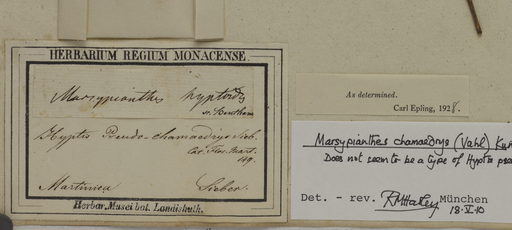 HERBARIUM REGIUM MONACENSE.
Marsypianthes hyptoides
Bentham
Hyptis Pseudo-chamaedrys Sieb.
Flor. Mart.
149.
Martinica Sieber.
Herbar. Musei bot. Landishuth.
As determined.
Carl Epling, 1928.
Marsypianthes chamaedrys (Vahl)
Does not seem to be a type of Hyptis
Det. - rev. RMHarley München
18.V.10